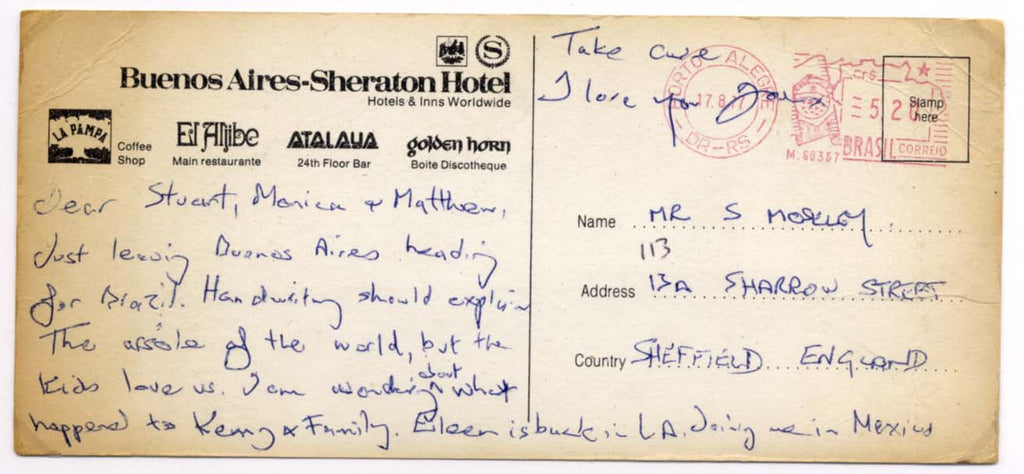 Buenos Aires-Sheraton Hotel
Hotels & Inns Worldwide
LA PAMPA
Coffee
Shop
El Aljibe
Main restaurante
ATALAYA
24th Floor Bar
golden horn
Boite Discotheque
Dear Stuart, Monica & Matthew,
Just leaving Buenos Aires heading
for Brazil. Handwriting should explain
The arsole of the world, but the
Kids love us. I am wondering about what
happened to & Family. Eileen is back in LA. doing in
Take care
I love you
PORTO ALEGRE
17.8.77
DR-RS
Crs 2
5,20
BRASIL CORREIO
Stamp
here
Name MR S MOXLEY
113
Address 13A SHARROW STREET
Country SHEFFIELD ENGLAND